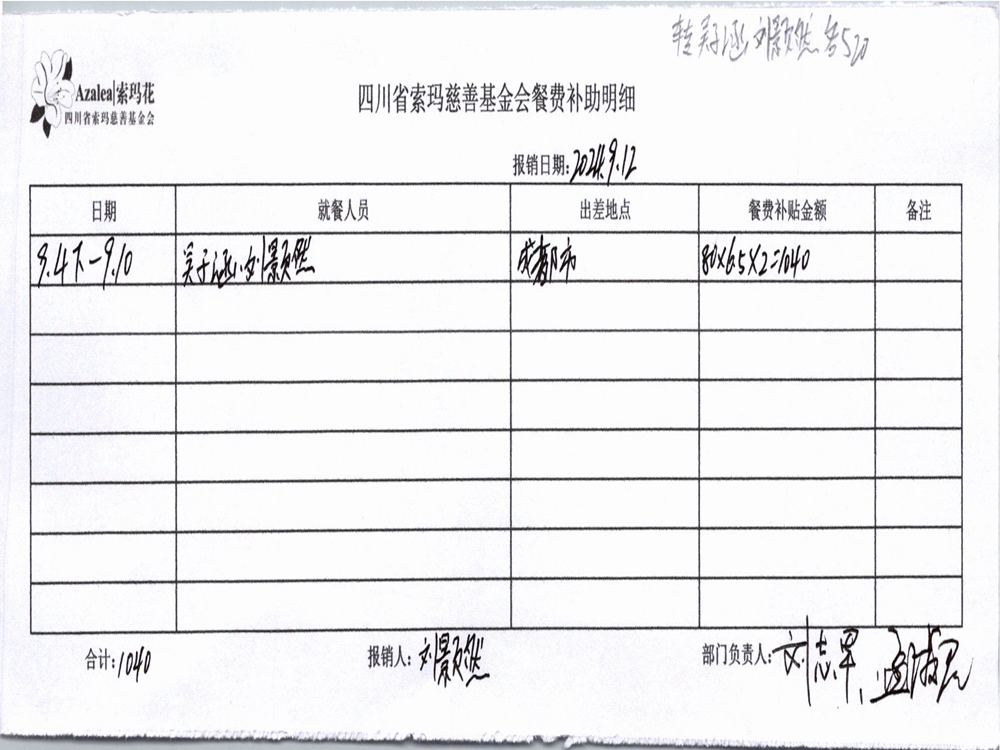 转吴子涵 刘颢然各520
Azalea|索玛花
四川省索玛慈善基金会
四川省索玛慈善基金会餐费补助明细
报销日期:2024.9.12
日期 就餐人员 出差地点 餐费补贴金额 备注
9.4下-9.10 吴子涵、刘颢然 成都市 80×6.5×2=1040
合计:1040 报销人:刘颢然 部门负责人:刘志军、